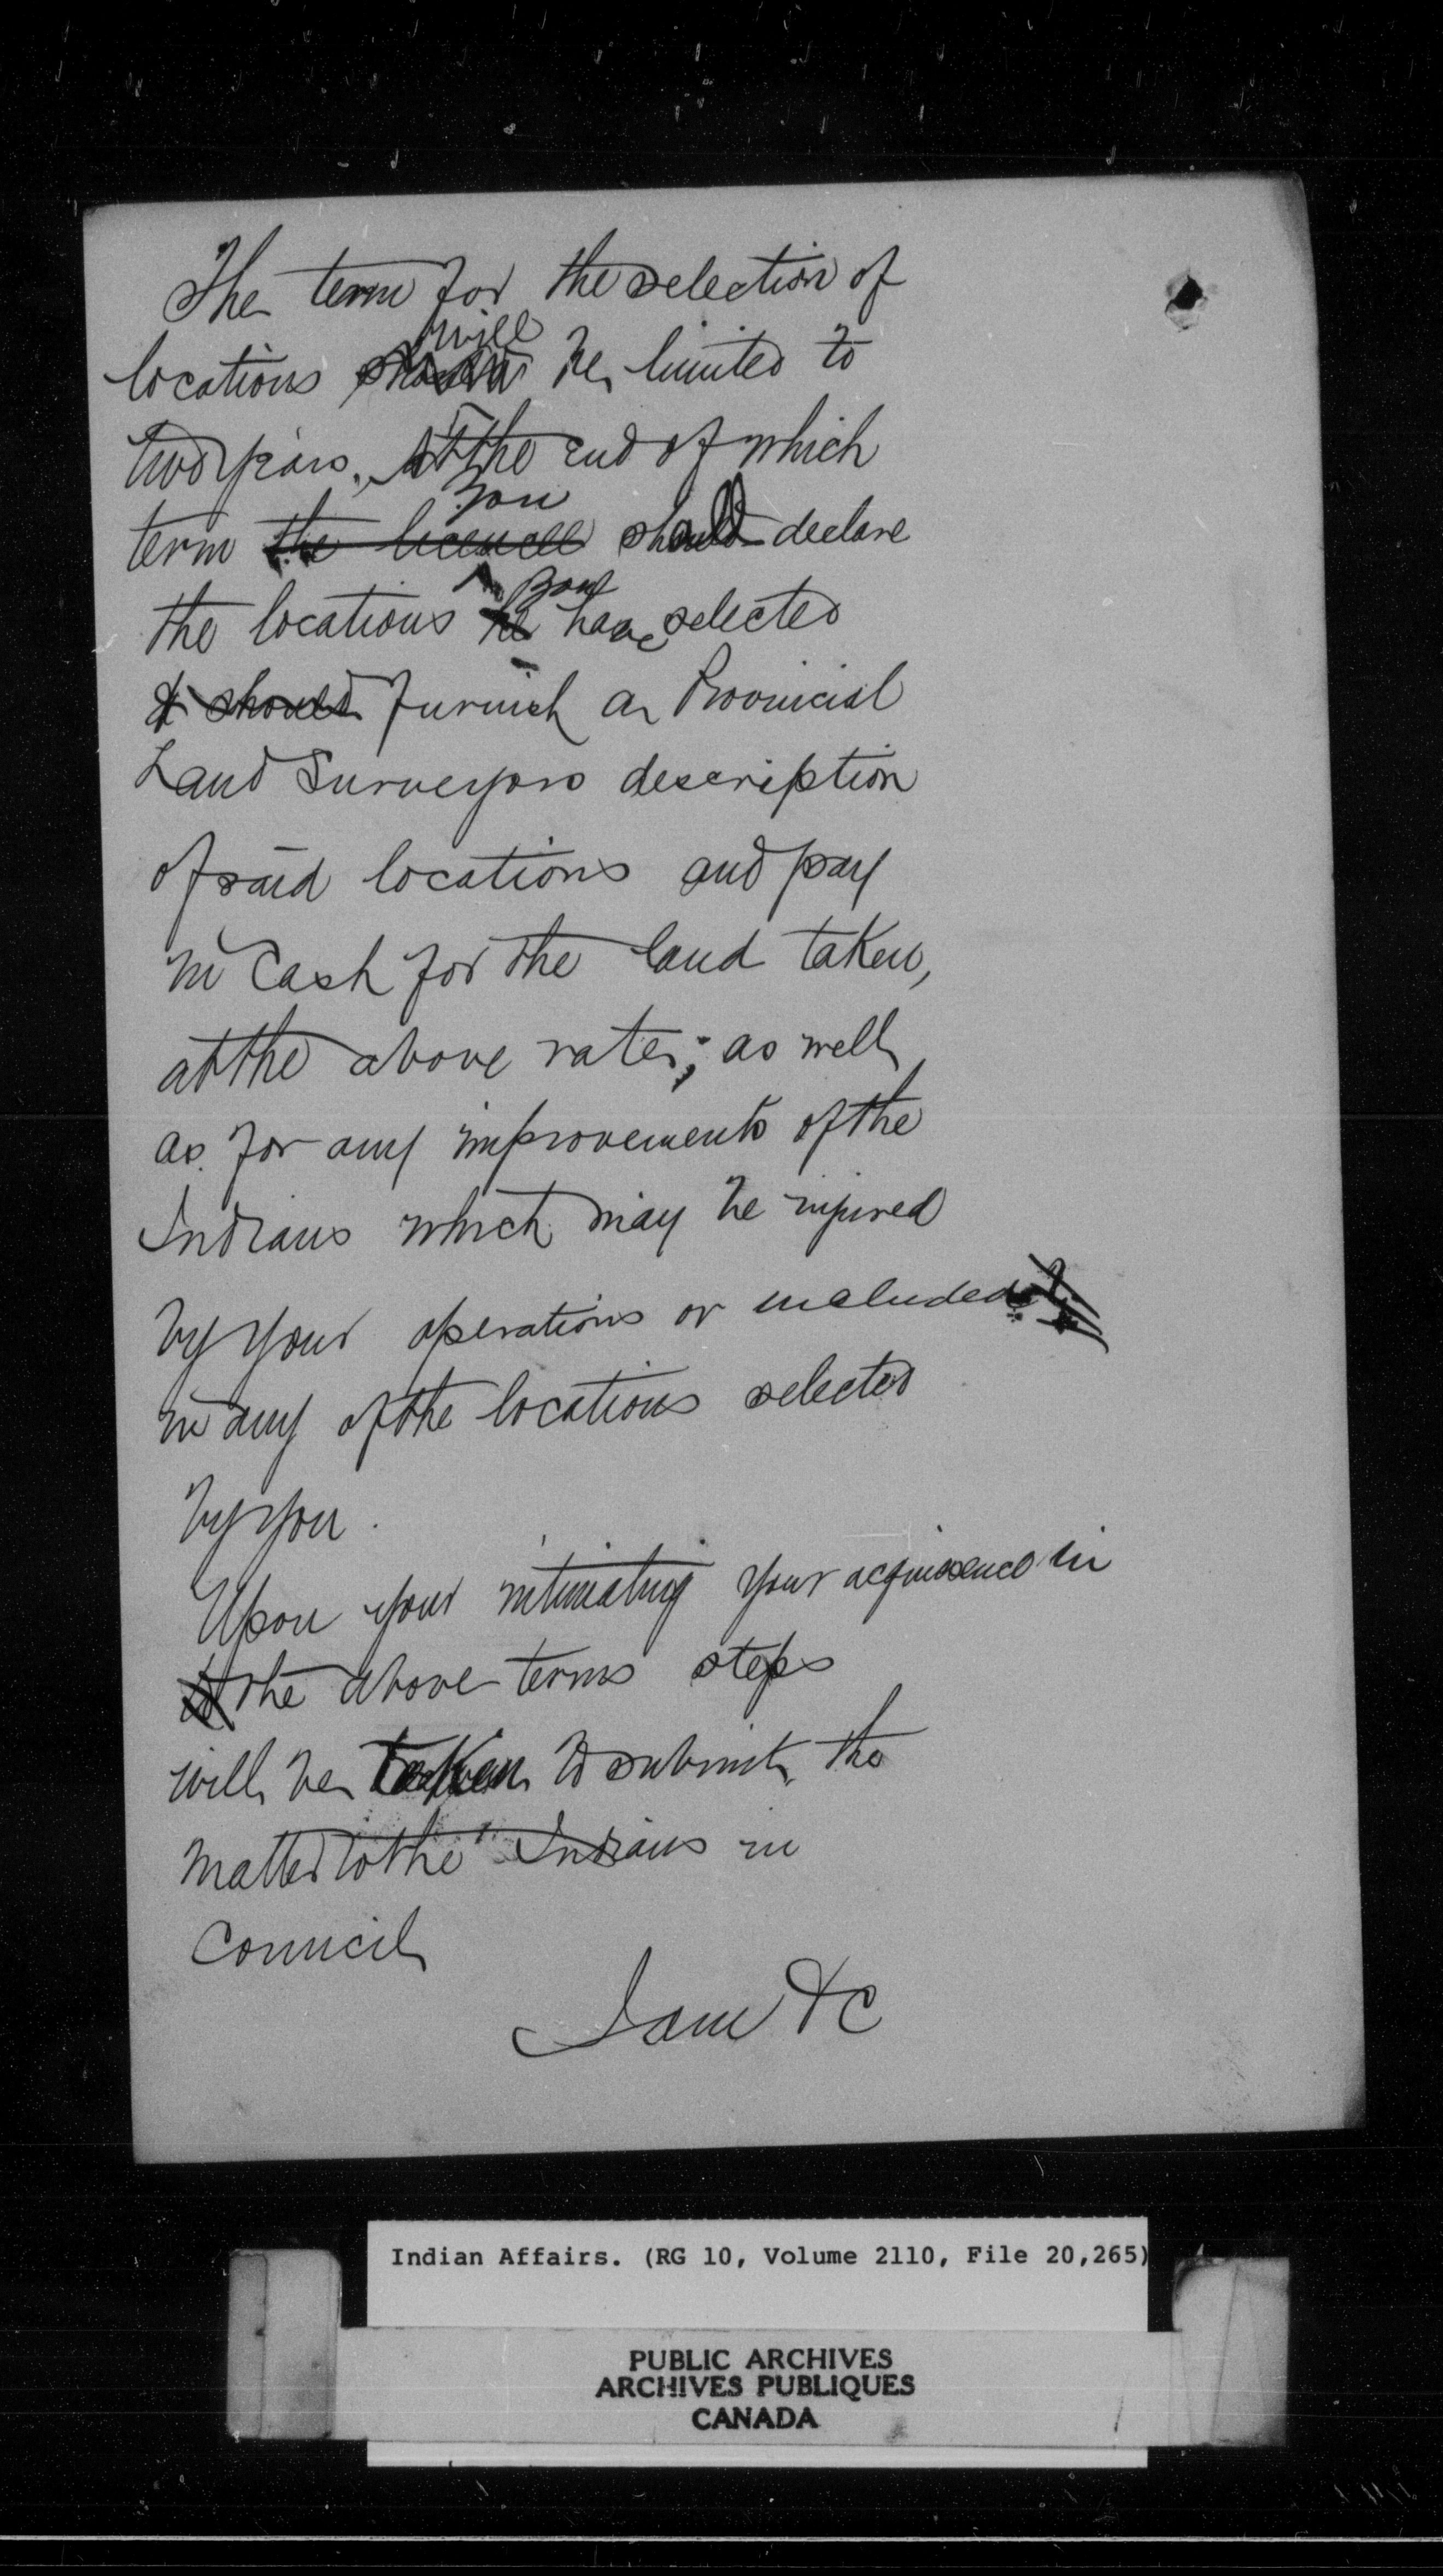 The term for the selection of
will
locations should be limited to
two years, At the end of which
you
term the licencee should declare
you
the locations he have selected
& should furnish a Provincial
Land Surveyors description
of said locations and pay
in Cash for the land taken,
at the above rates; as well
as for any improvements of the
Indians which may be injured
by your operations or included
in any of the locations selected
by you.
Upon your intimating your acquiesence in
to the above terms steps
will be taken to submit the
matter to the Indians in
Council
I am &c
Indian Affairs. (RG 10, Volume 2110, File 20,265)
PUBLIC ARCHIVES
ARCHIVES PUBLIQUES
CANADA